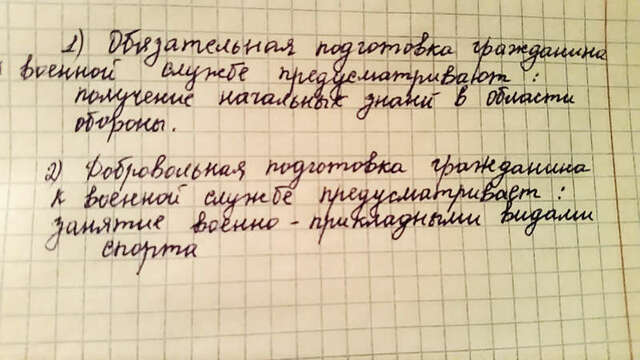 1) Обязательная подготовка гражданина
к военной службе предусматривают :
получение начальных знаний в области
обороны.
2) Добровольная подготовка гражданина
к военной службе предусматривает :
занятие военно - прикладными видами
спорта